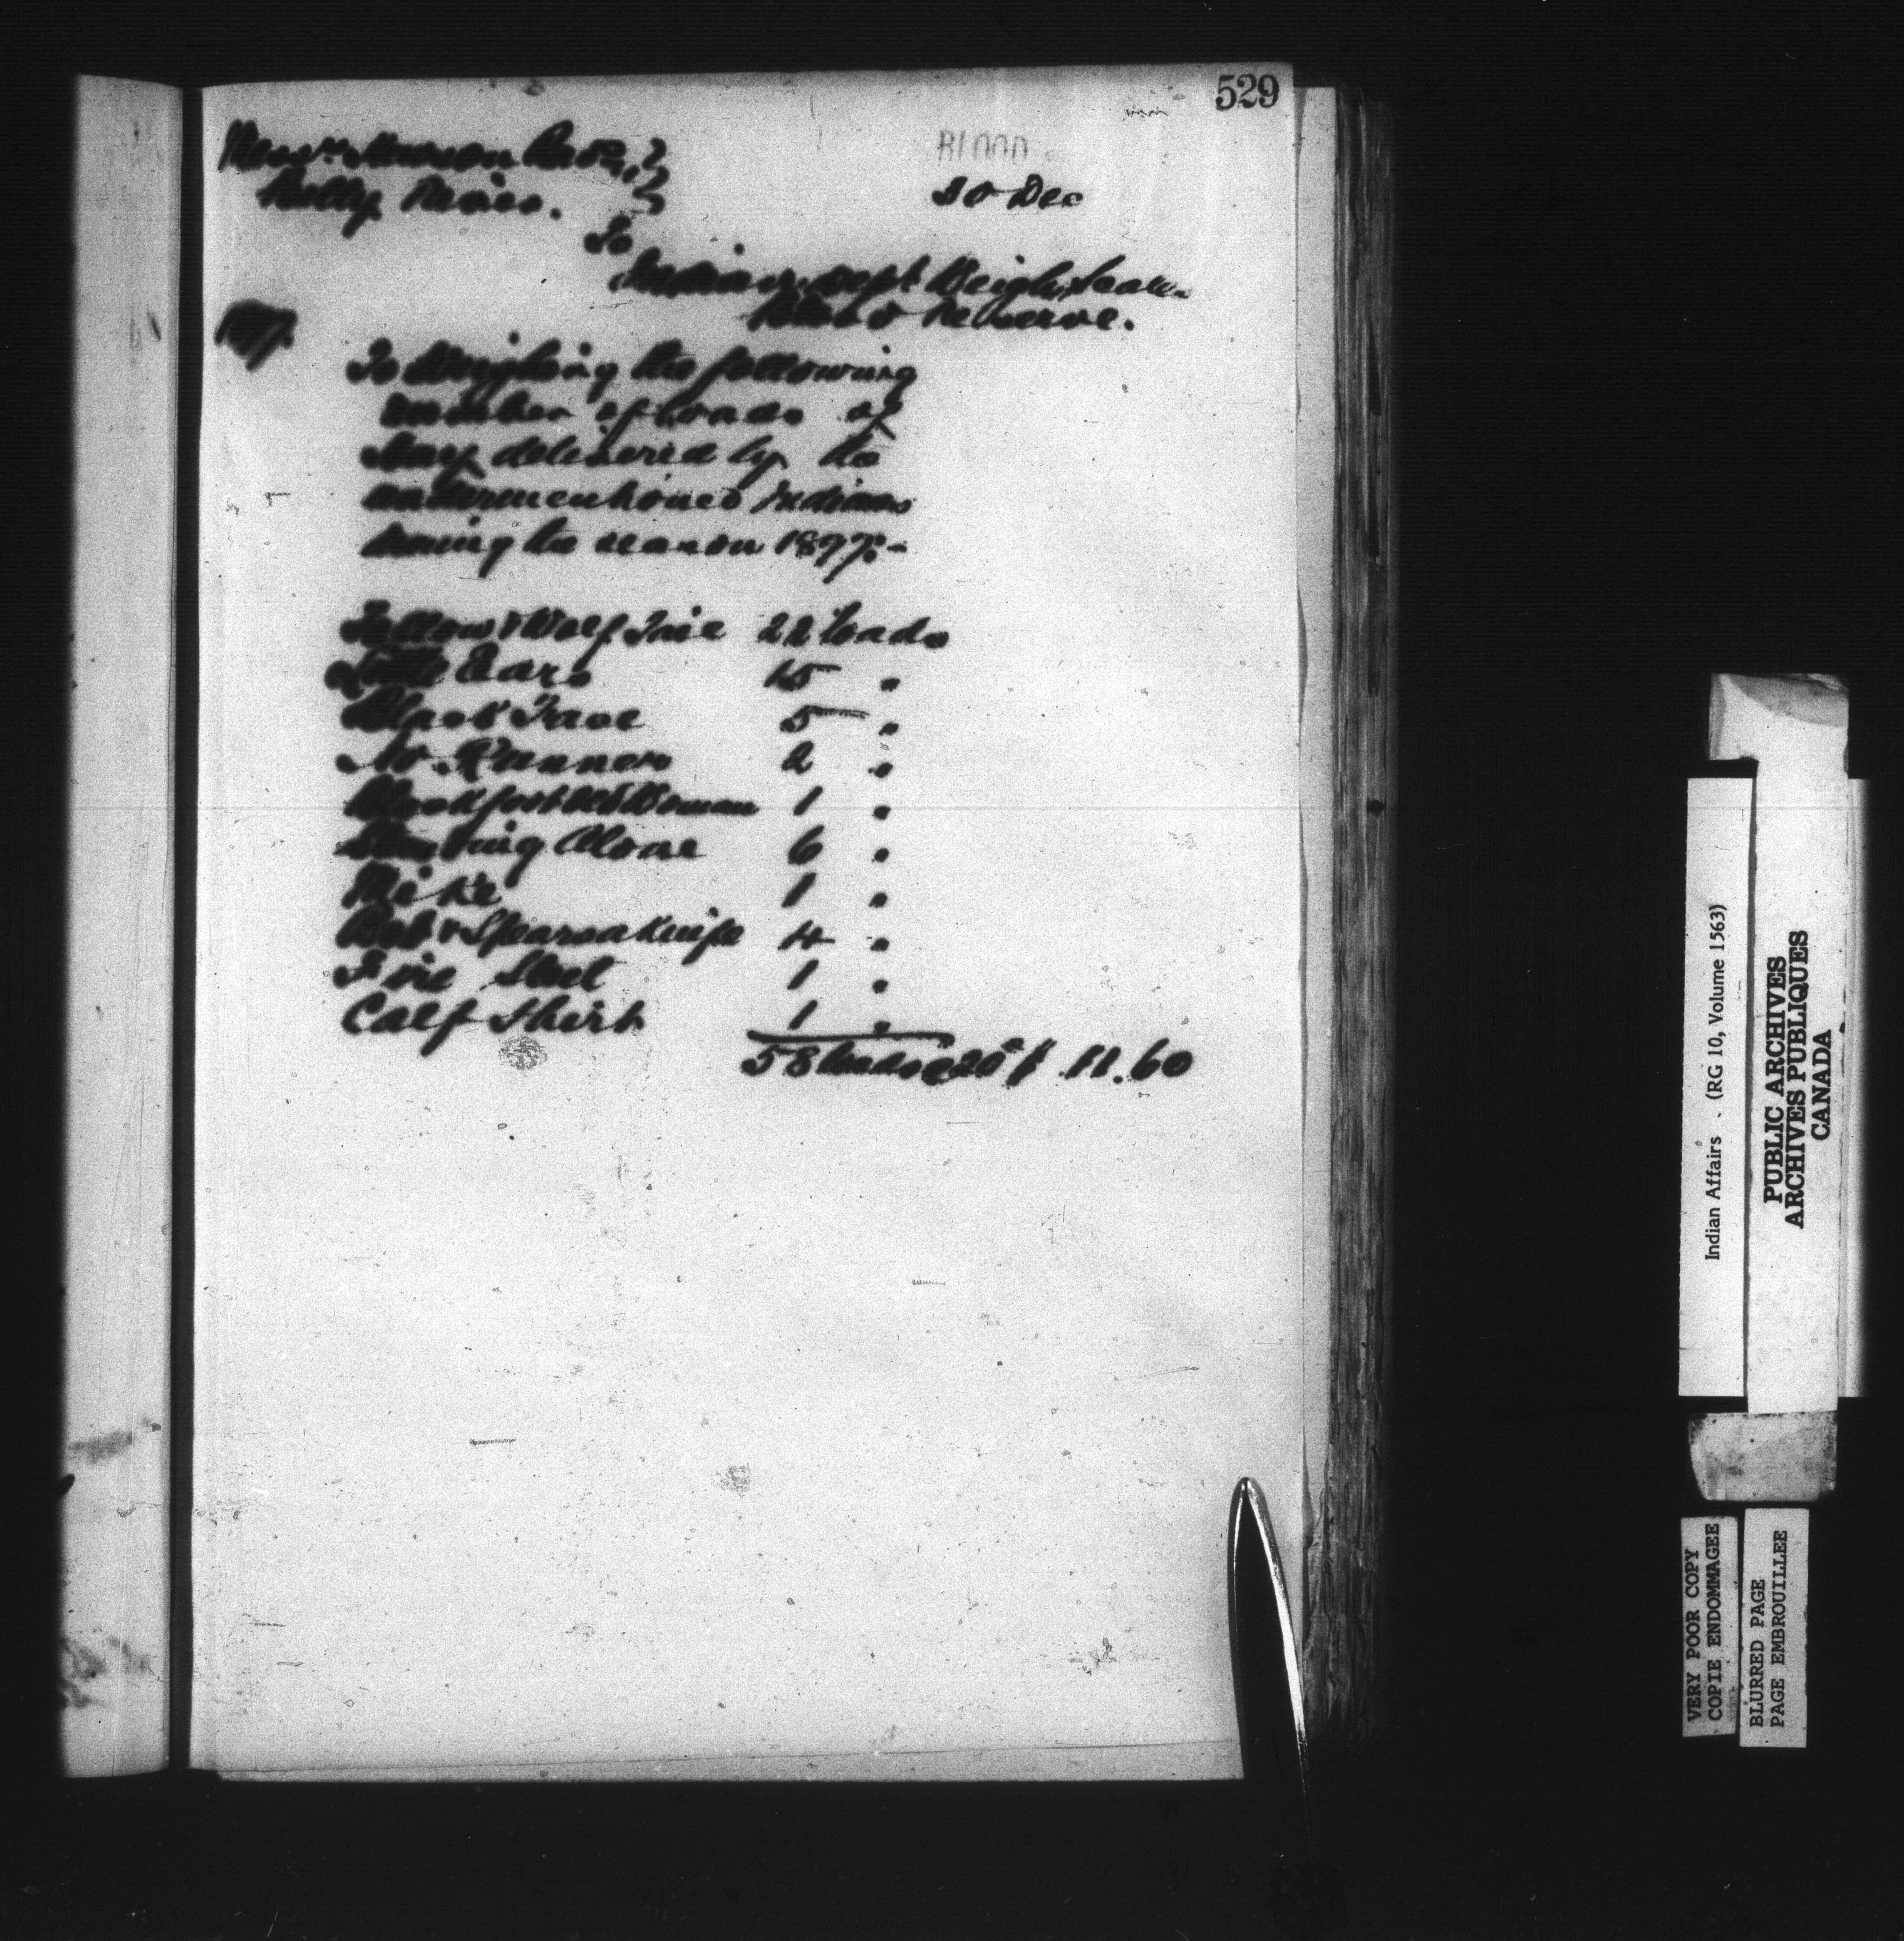 529
BLOOD
Messrs Bros,
Belly River.
30 Dec
To
Indian Dept Weigh Scales
Blood Reserve.
1897.
To Weighing the following
number of loads of
Hay delivered by the
undermentioned Indians
during the season 1897:-
Tallow & Wolf Tail 22 loads
Little Ears 15 "
Black Face 5 "
No Runner 2 "
Blackfoot Old Woman 1 "
Sleeping Alone 6 "
Mike 1 "
Bob & Spearsa Knife 4 "
Fire Steel 1 "
Calf Shirt 1 "
58 loads @ 20¢ $ 11.60
Indian Affairs . (RG 10, Volume 1563)
PUBLIC ARCHIVES
ARCHIVES PUBLIQUES
CANADA
VERY POOR COPY
COPIE ENDOMMAGEE
BLURRED PAGE
PAGE EMBROUILLEE